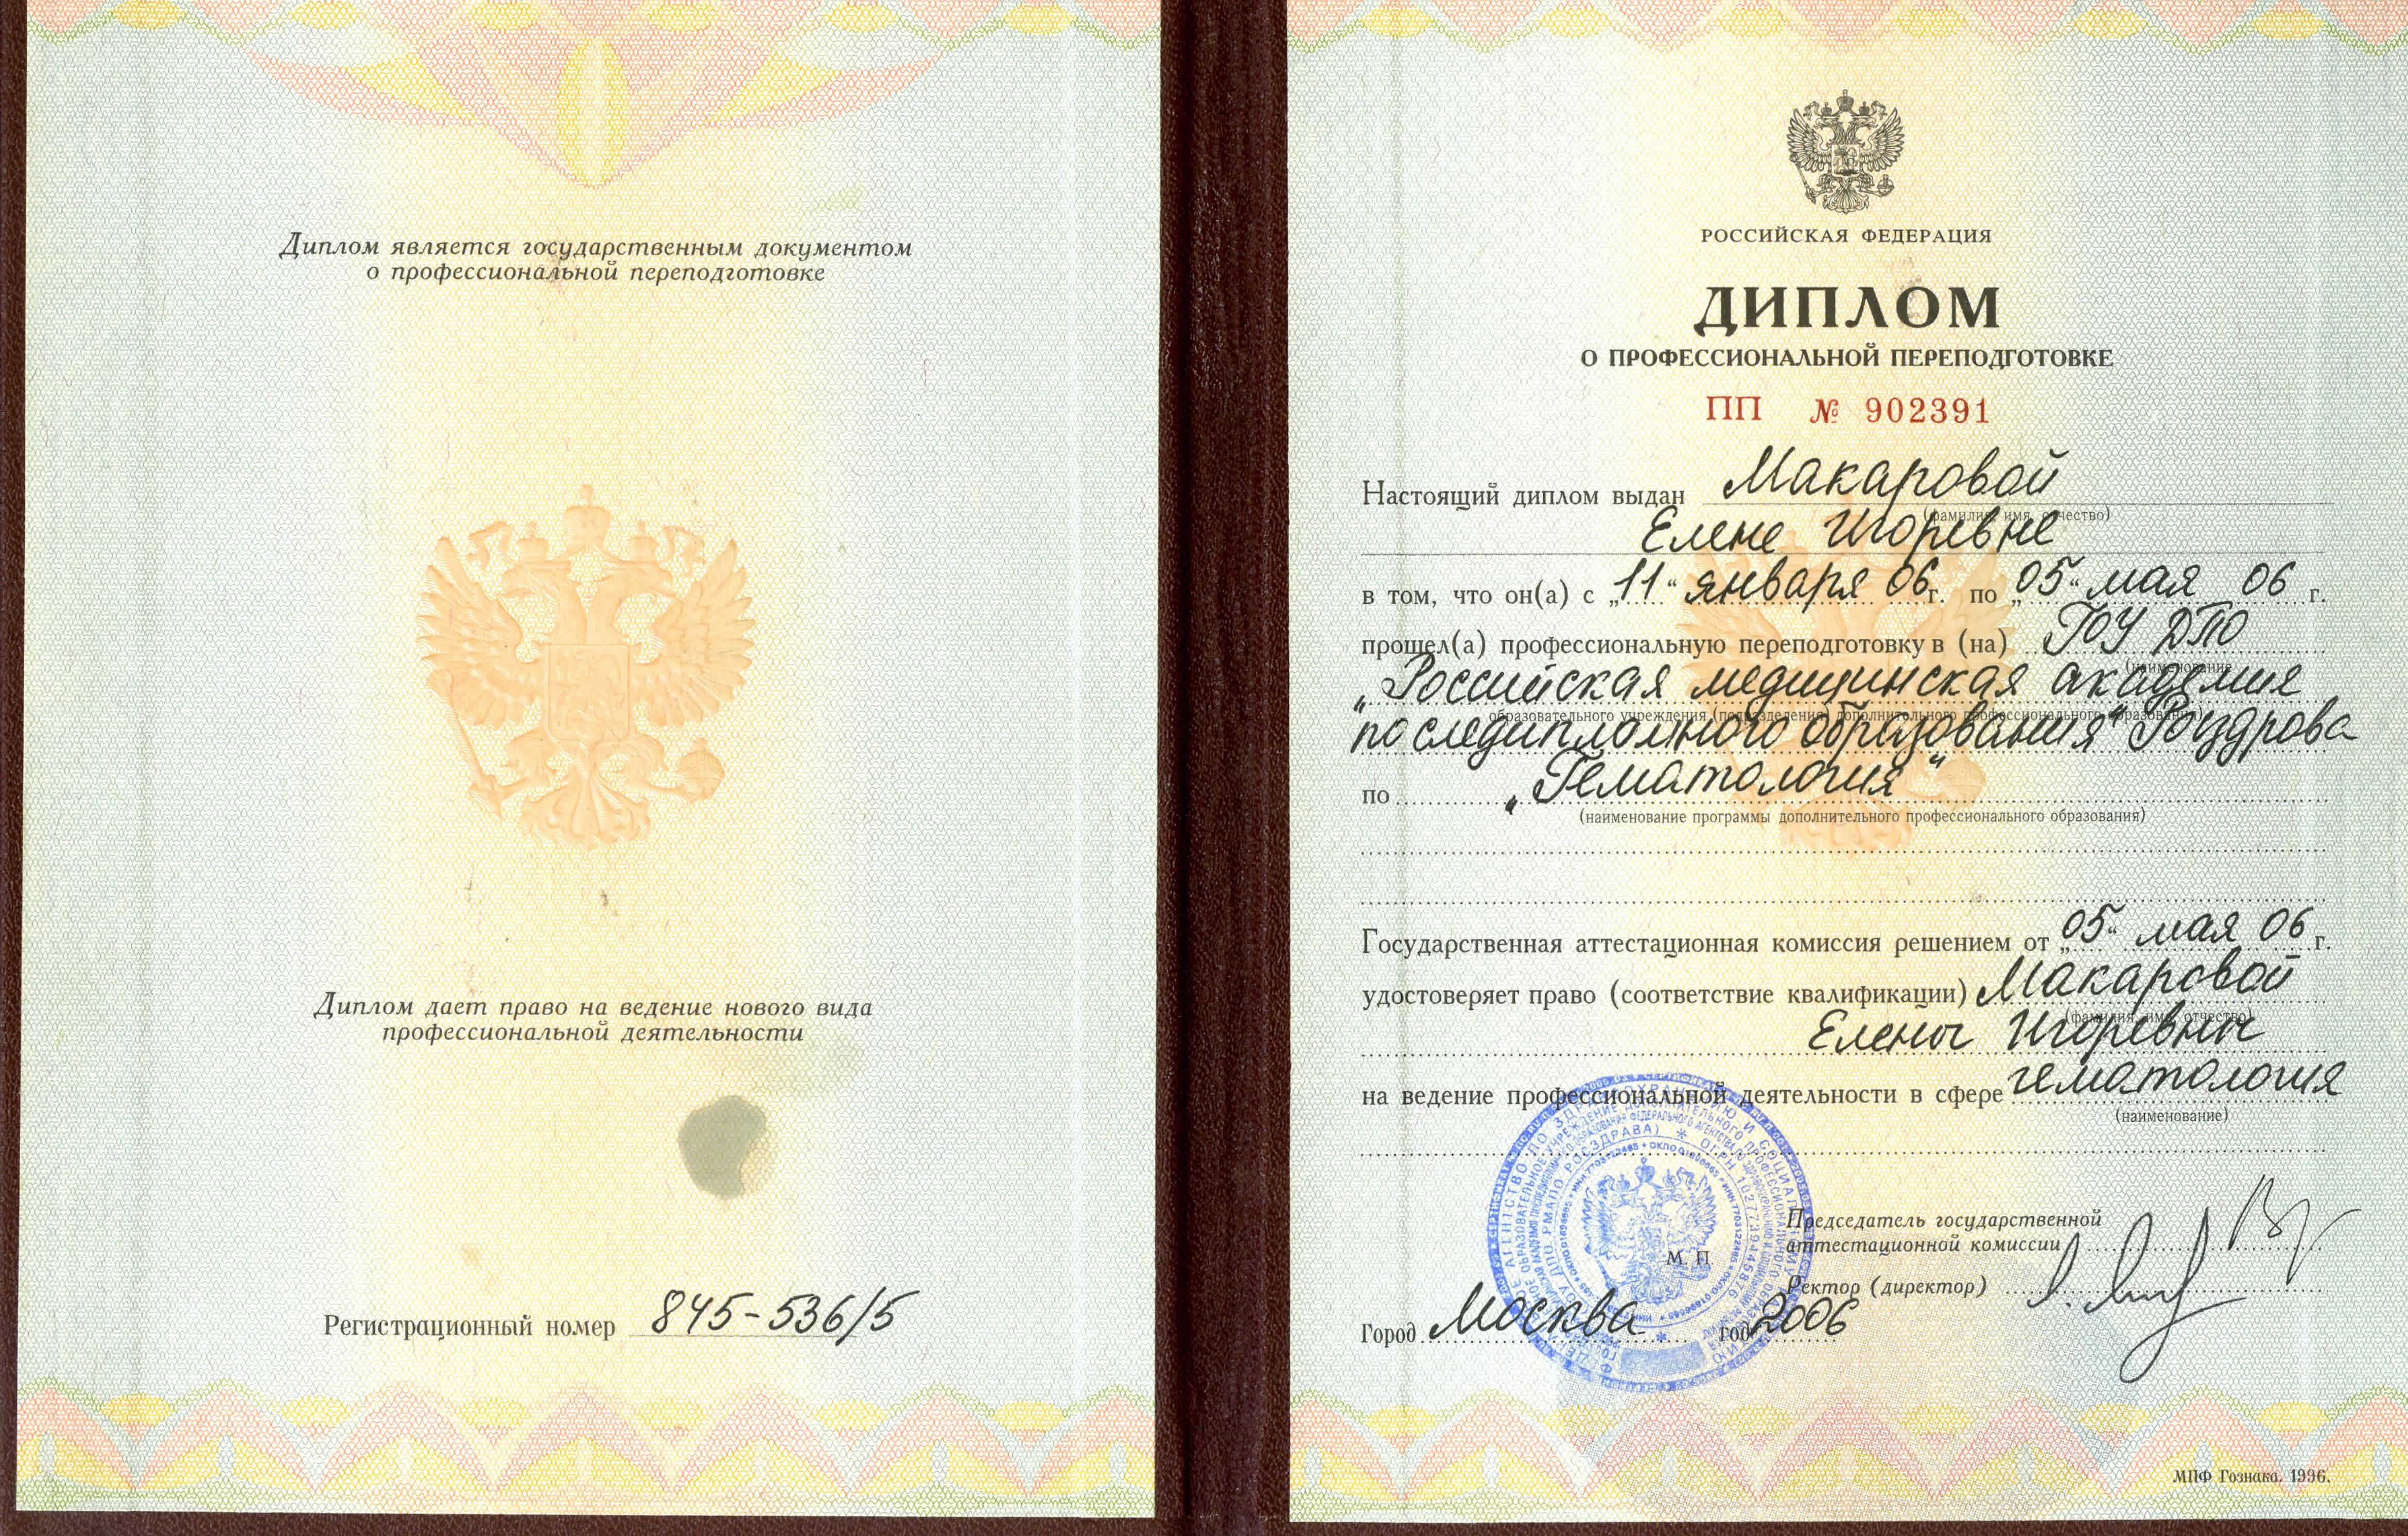 Диплом является государственным документом
о профессиональной переподготовке
Диплом дает право на ведение нового вида
профессиональной деятельности
Регистрационный номер 845-536/5
РОССИЙСКАЯ ФЕДЕРАЦИЯ
ДИПЛОМ
О ПРОФЕССИОНАЛЬНОЙ ПЕРЕПОДГОТОВКЕ
ПП № 902391
Настоящий диплом выдан Макаровой
(фамилия, имя, отчество)
Елене Игоревне
в том, что он(а) с „11“ января 06г. по „05“ мая 06 г.
прошел(а) профессиональную переподготовку в (на) ГОУ ДПО
(наименование
„Российская медицинская академия
образовательного учреждения (подразделения) дополнительного профессионального образования)
последипломного образования“ Росздрава
по „Гематология“
(наименование программы дополнительного профессионального образования)
Государственная аттестационная комиссия решением от „05“ мая 06 г.
удостоверяет право (соответствие квалификации) Макаровой
(фамилия, имя, отчество)
Елены Игоревны
на ведение профессиональной деятельности в сфере гематология
(наименование)
Председатель государственной
аттестационной комиссии
М. П.
Ректор (директор)
Город Москва год 2006
МПФ Гознака. 1996.